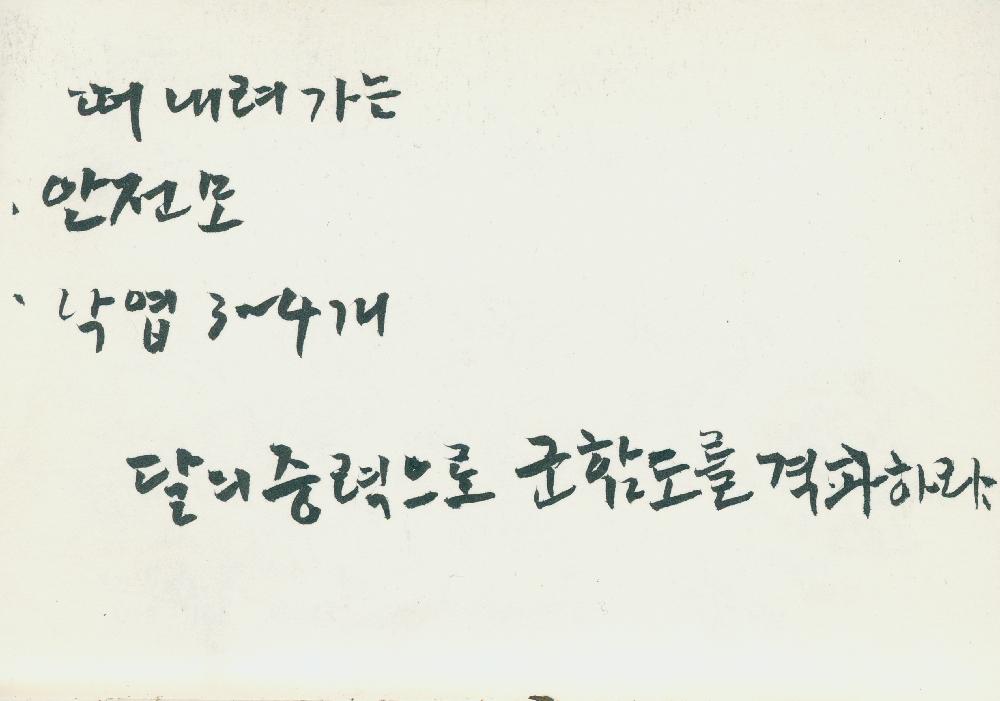 떠 내려 가는
· 안전모
· 낙엽 3~4개
달의 중력으로 군함도를 격파하라